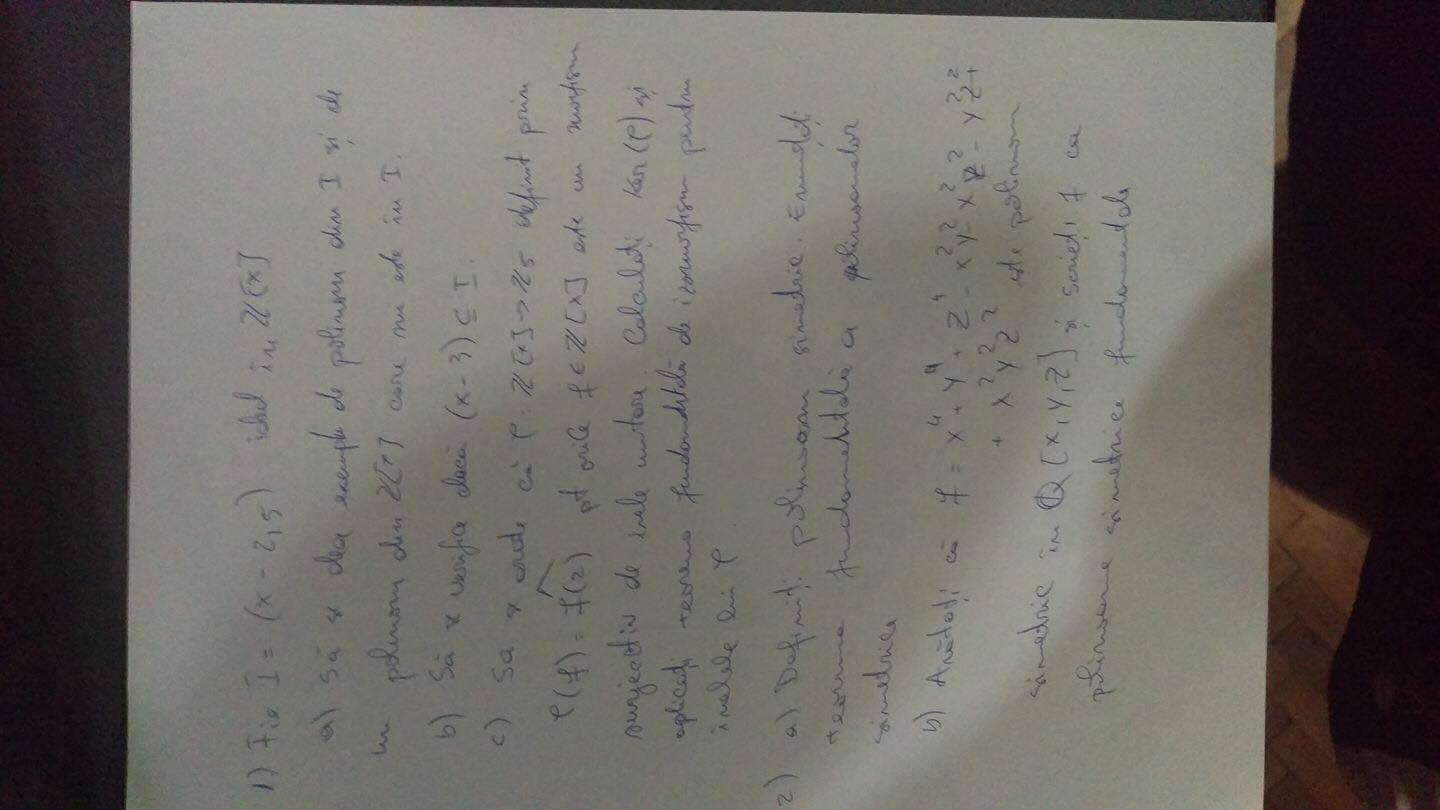 1) Fie I = (x - 2, 5) ideal în ℤ[x]
a) Să se dea exemplu de polinom din I și de
un polinom din ℤ[x] care nu este în I.
b) Să se verifice dacă (x-3) ⊆ I.
c) Sa se arate că φ: ℤ[x] → ℤ₅ definit prin
φ(f) = \widehat{f(2)} pt orice f ∈ ℤ[x] este un morfism
surjectiv de inele unitare. Calculați Ker(φ) și
aplicați teorema fundamentală de izomorfism pentru
inelele lui φ.
2) a) Definiți polinoam simetric. Enunțați
teorema fundamentală a polinoamelor
simetrice
b) Arătați că f = x⁴ + y⁴ + z⁴ - x²y² - x²z² - y²z² +
+ x²y²z² este polinom
simetric în ℚ[x, y, z] și scrieți f ca
polinoame simetrice fundamentale